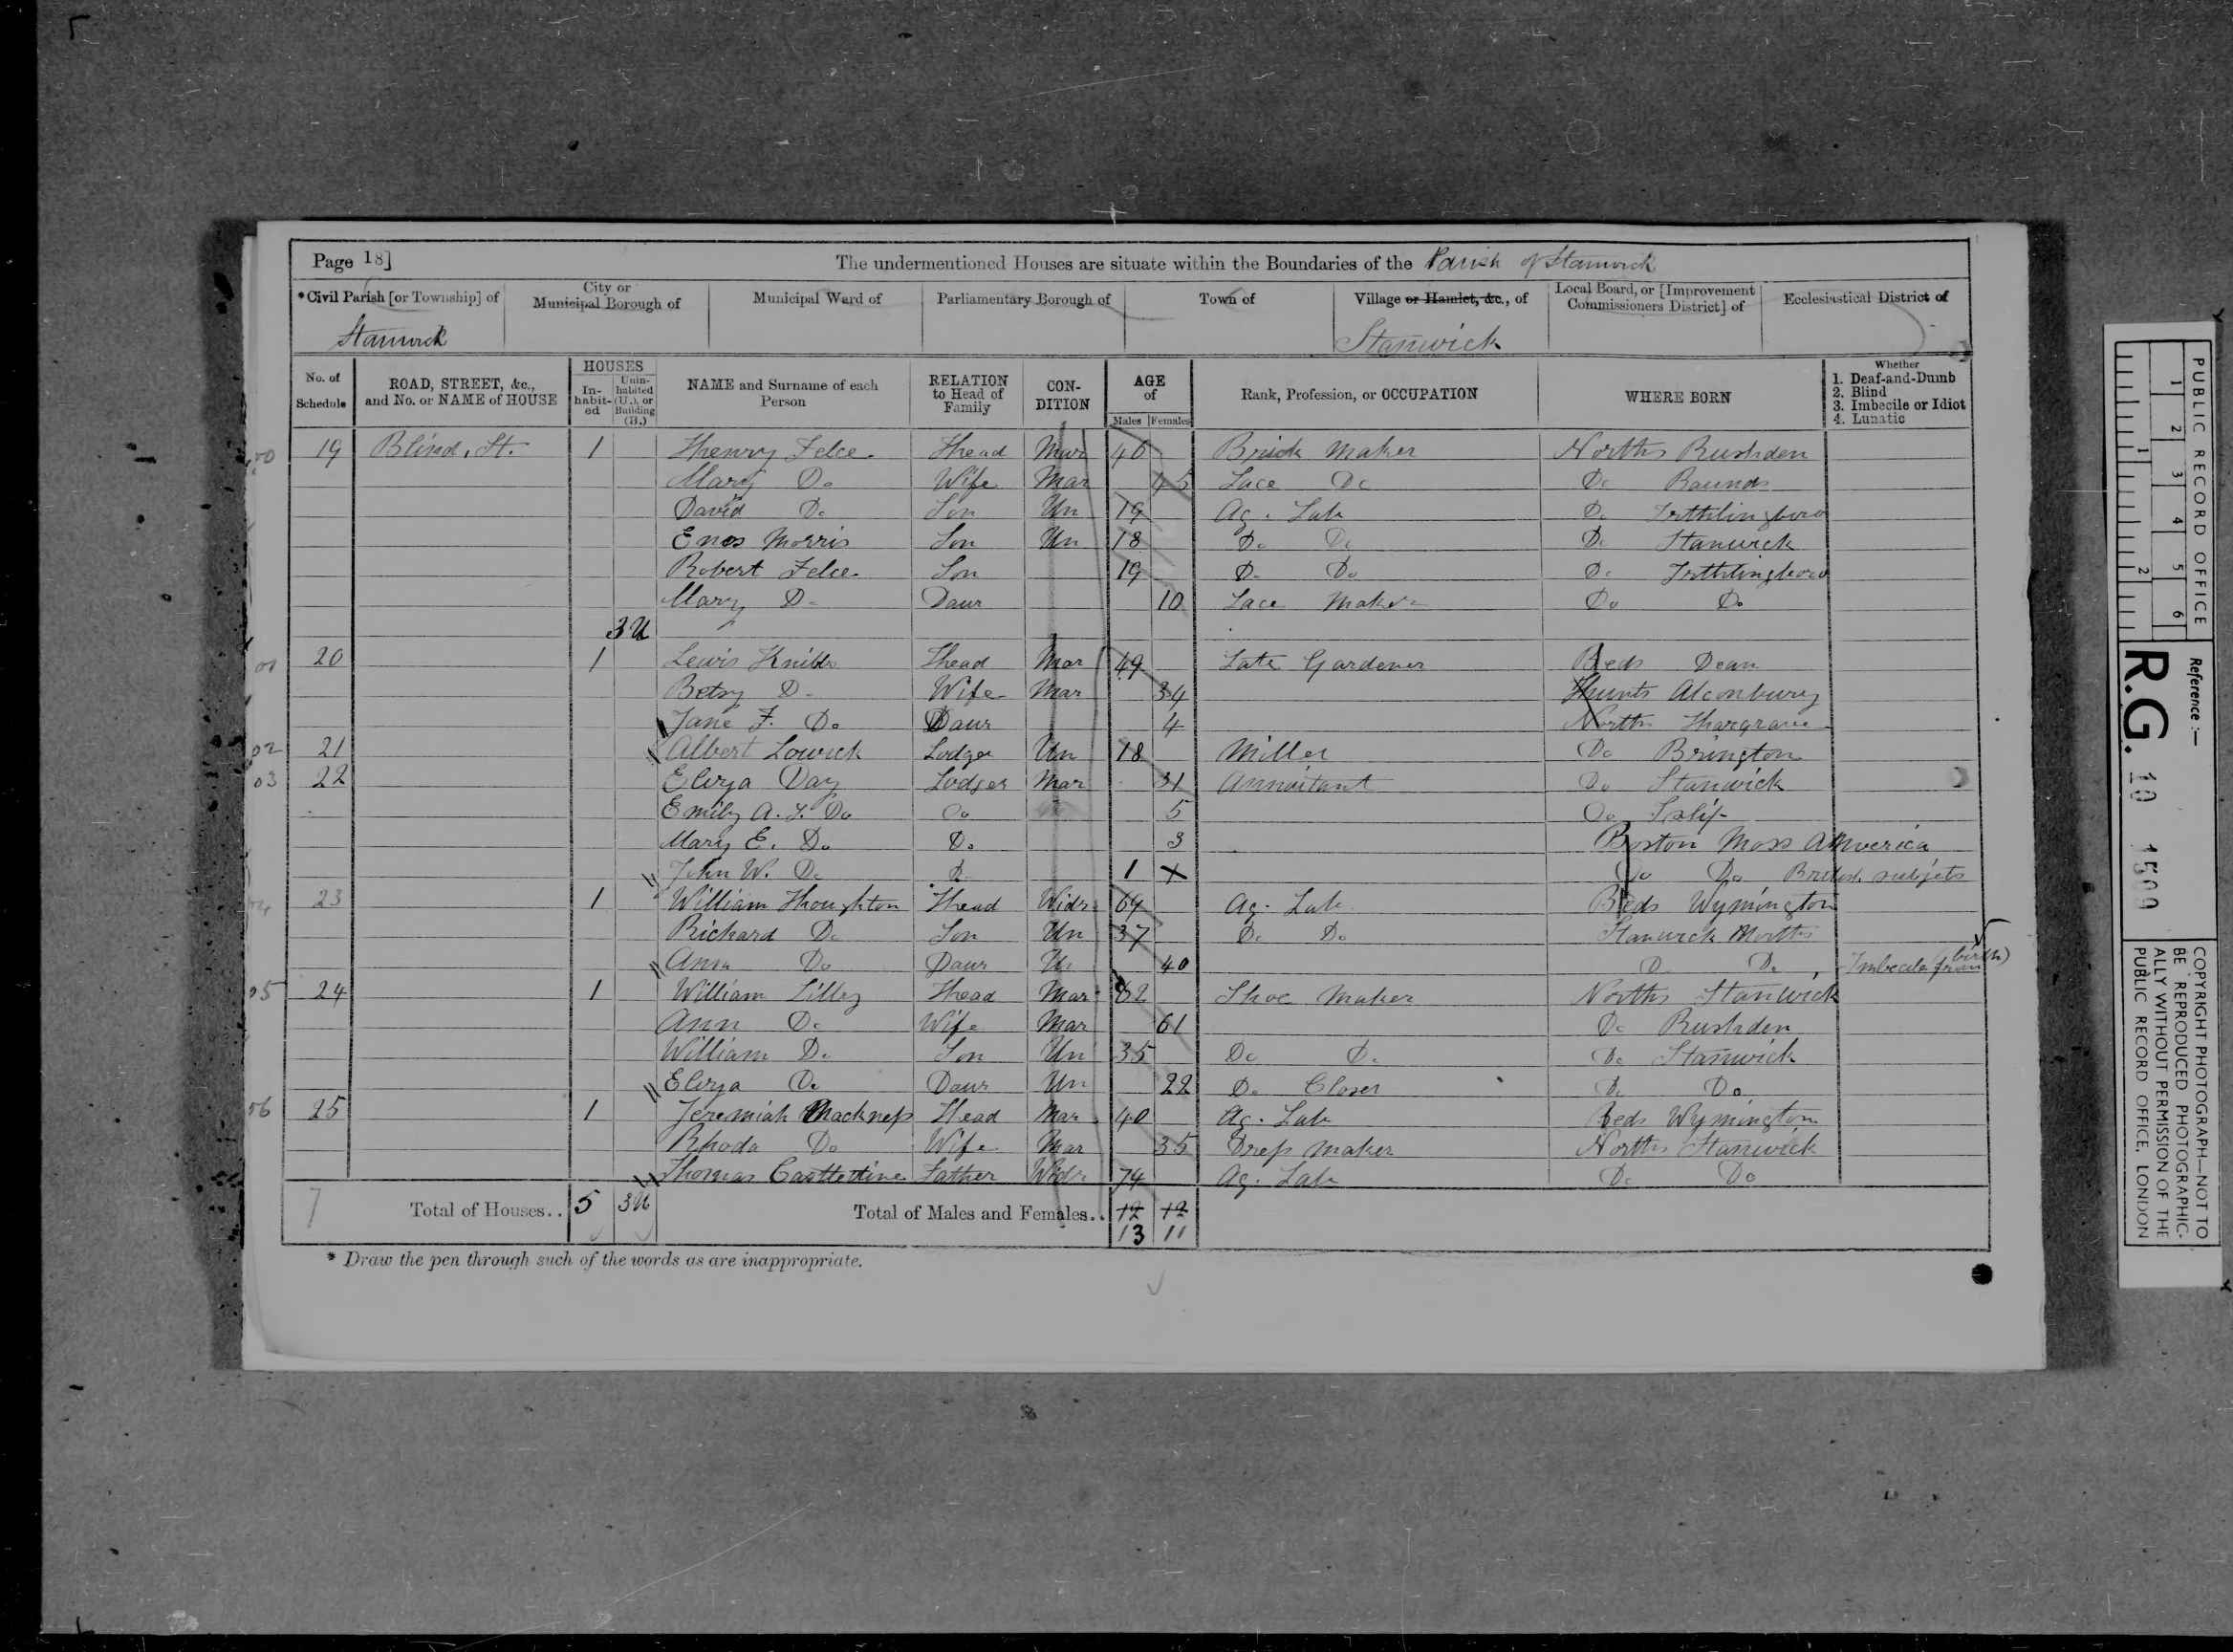 Page 18] The undermentioned Houses are situate within the Boundaries of the Parish of Stanwick
*Civil Parish [or Township] of City or Municipal Borough of Municipal Ward of Parliamentary Borough of Town of Village or Hamlet, &c., of Local Board, or [Improvement Commissioners District] of Ecclesiastical District of
Stanwick Stanwick
No. of Schedule ROAD, STREET, &c., and No. or NAME of HOUSE HOUSES In-habit-ed Unin-habited (U.), or Building (B.) NAME and Surname of each Person RELATION to Head of Family CON-DITION AGE of Males Females Rank, Profession, or OCCUPATION WHERE BORN Whether 1. Deaf-and-Dumb 2. Blind 3. Imbecile or Idiot 4. Lunatic
19 Blind. St. 1 Henry Felce Head Mar 46 Brick Maker Norths Rushden
Mary Do Wife Mar 45 Lace Do Do Raunds
David Do Son Un 19 Ag. Lab Do Irthlingboro
Enos Morris Son Un 18 Do Do Do Stanwick
Robert Felce Son 19 Do Do Do Irthlingboro
Mary Do Daur 10 Lace Maker Do Do
3 U
20 1 Lewis Knibbs Head Mar 49 Late Gardener Beds Dean
Betsy Do Wife Mar 34 Hunts Alconbury
Jane F. Do Daur 4 North Hargrave
21 Albert Lowick Lodger Un 18 Miller Do Brington
22 Eliza Day Lodger Mar 31 Annuitant Do Stanwick
Emily A. Do Do 5 Do Islip
Mary E. Do Do 3 Boston Mass America
John W. Do D 1 Do Do British subjets
23 1 William Houghton Head Widr 69 Ag. Lab Beds Wymington
Richard Do Son Un 37 Do Do Stanwick North
Ann Do Daur Un 40 Do Do Imbecile from birth
24 1 William Lilley Head Mar 62 Shoe Maker Norths Stanwick
Ann Do Wife Mar 61 Do Rushden
William Do Son Un 35 Do Do Do Stanwick
Eliza Do Daur Un 22 Do Closer Do Do
25 1 Jeremiah Mackness Head Mar 40 Ag. Lab Beds Wymington
Rhoda Do Wife Mar 35 Dress Maker Norths Stanwick
Thomas Castledine Father Widr 74 Ag. Lab Do Do
Total of Houses.. 5 3U Total of Males and Females.. 12 12
13 11
* Draw the pen through such of the words as are inappropriate.
PUBLIC RECORD OFFICE
1 2 3 4 5 6
1 2
Reference :—
R.G. 10 1500
COPYRIGHT PHOTOGRAPH—NOT TO
BE REPRODUCED PHOTOGRAPHIC-
ALLY WITHOUT PERMISSION OF THE
PUBLIC RECORD OFFICE, LONDON